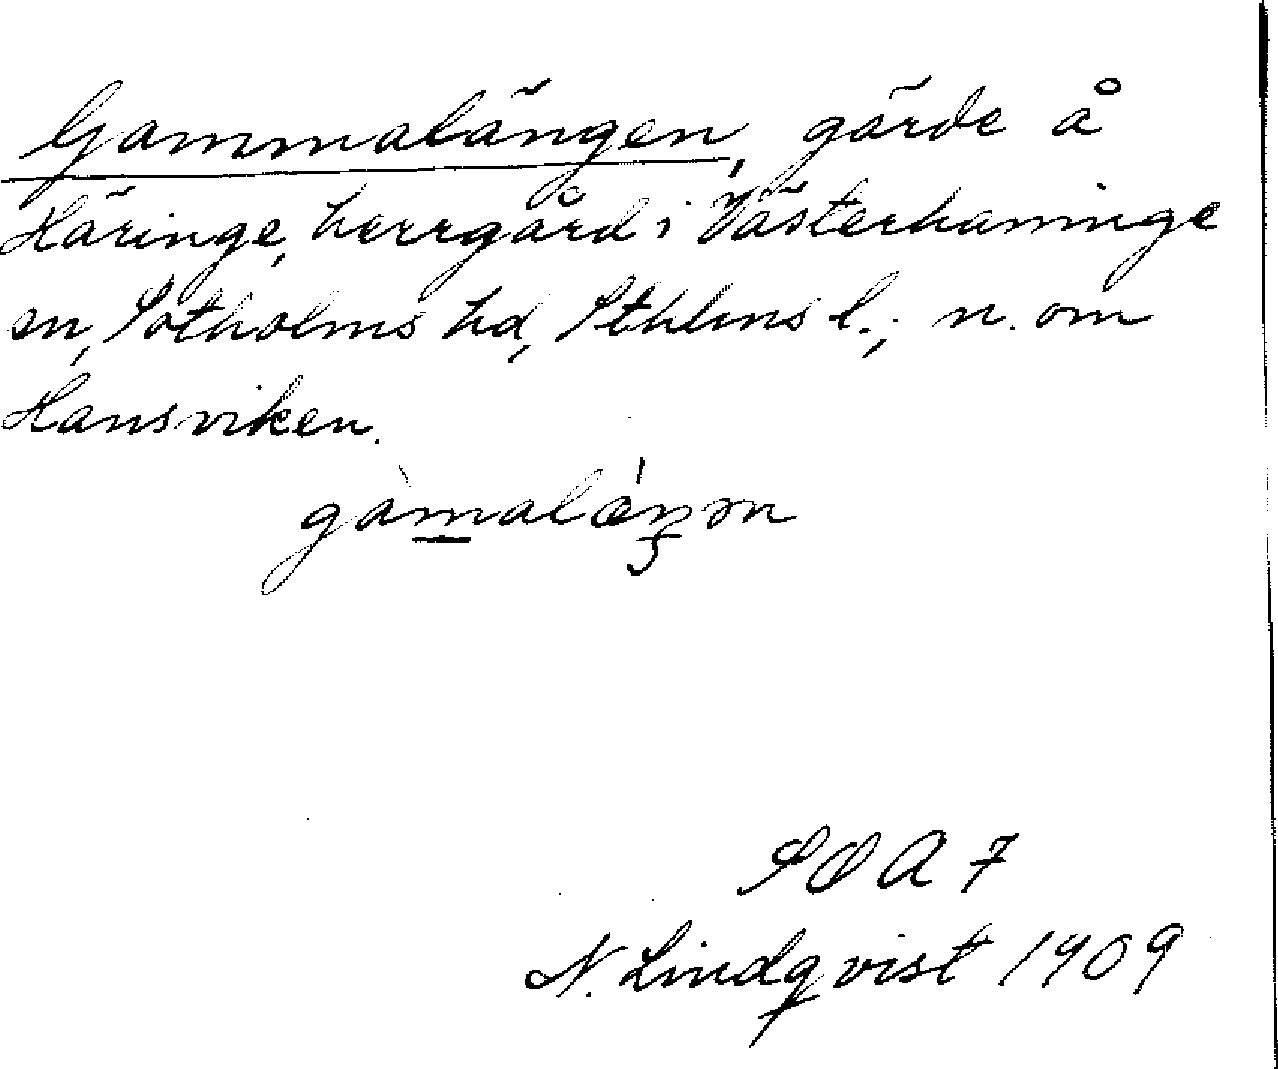 Gammalängen, gärde å
Häringe, herrgård i Västerhaninge
sn, Sotholms hd, Sthlms l.; n. om
Hansviken.
gàmalǽŋən
SOA 7
N. Lindqvist 1909